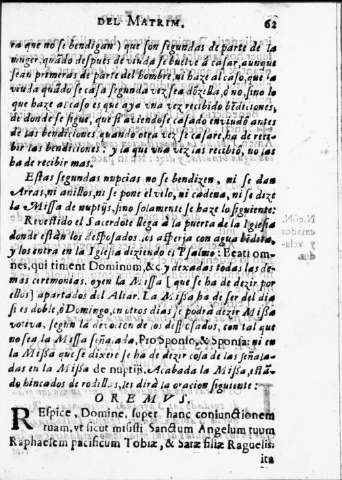 DEL MATRIM. 62
ra que no se bendigan) que son segundas de parte de la
muger, quãdo despues de viuda se buelve á casar, aunque
sean primeras de parte del hombre, ni haze al caso, que la
viuda quãdo se casa segunda vez sea dõzella, ò no, sino lo
que haze al caso es que aya vna vez recibido bẽdiciones,
de donde se sigue, que si aviendose casado enviudò antes
de las bendiciones, quando otra vez se casare, ha de reci-
bir las bendiciones: y la que vna vez las recibió, no las
ha de recibir mas.
Estas segundas nupcias no se bendizen, ni se dan
Arras, ni anillos, ni se pone el velo, ni cadena, ni se dize
la Missa de nuptijs, sino solamente se haze lo siguiente:
Revestido el Sacerdote llega à la puerta de la Iglesia
donde estàn los desposados, los asperja con agua bẽdita,
y los entra en la Iglesia diziendo el Psalmo: Beati om-
nes, qui timent Dominum, &c. y dexadas todas las de-
mas ceremonias, oyen la Missa [que se ha de dezir por
ellos) apartados del Altar. La Missa ha de ser del dia
si es doble, ó Domingo, en otros dias se podrá dezir Missa
votiva, segun la devocion de los desposados, con tal que
no sea la Missa señalada, Pro Sponso, & Sponsa: ni en
la Missa que se dixere se ha de dezir cosa de las señala-
das en la Missa de nuptijs. Acabada la Missa, estã-
do hincados de rodillas, les dirá la oracion siguiente:
OREMVS.
REspice, Domine, super hanc coniunctionem
tuam, vt sicut misisti Sanctum Angelum tuum
Raphaelem pacificum Tobiæ, & Saræ filiæ Raguelis:
ita